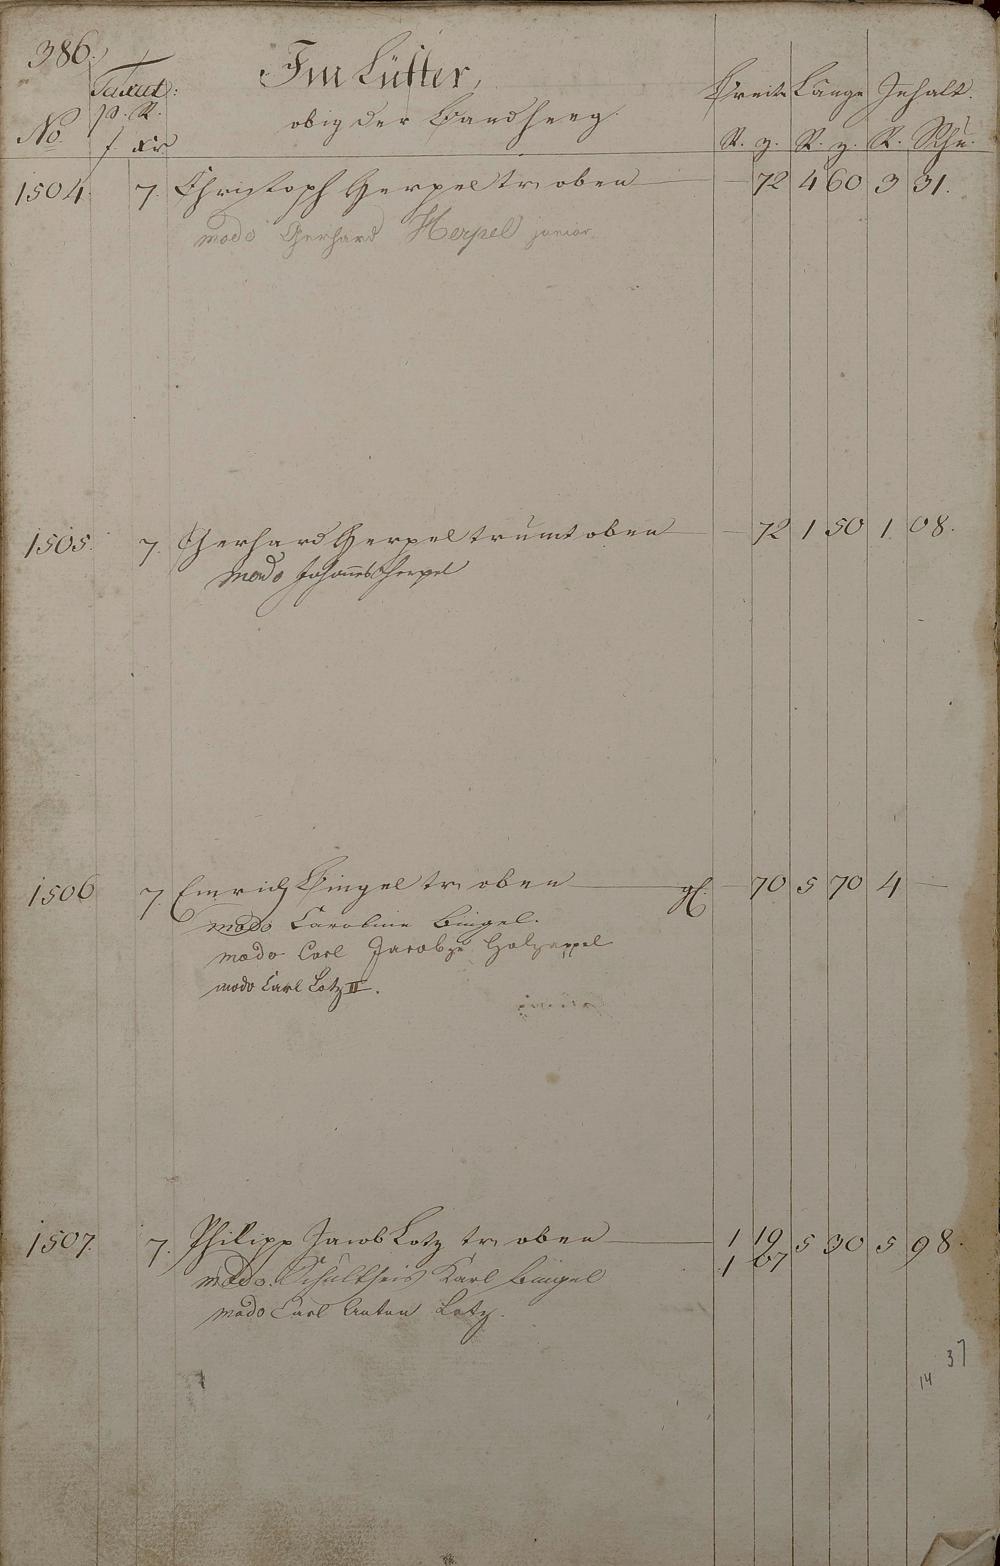 386.
Im Lüster,
obig der Landheeg.
No. Taxat: p. R. f. xr Breite Länge Inhalt.
R. z. R. z. R. Schu.
1504. 7. Christoph Herpel tr. oben — 72 4 60 3 31.
modo Gerhard Herpel junior.
1505. 7. Gerhard Herpel trumt oben — 72 1 50 1 08.
modo Johannes Herpel
1506 7. Emrich Bingel tr. oben — gl. — 70 5 70 4 —
modo Caroline Bingel.
modo Carl Jacob zu Holzappel
modo Carl Lotz II.
1507. 7. Philipp Jacob Lotz tr. oben — 1 19 5 30 5 98.
1 07
modo Schultheis Karl Bingel
modo Carl Anton Lotz.
37
14